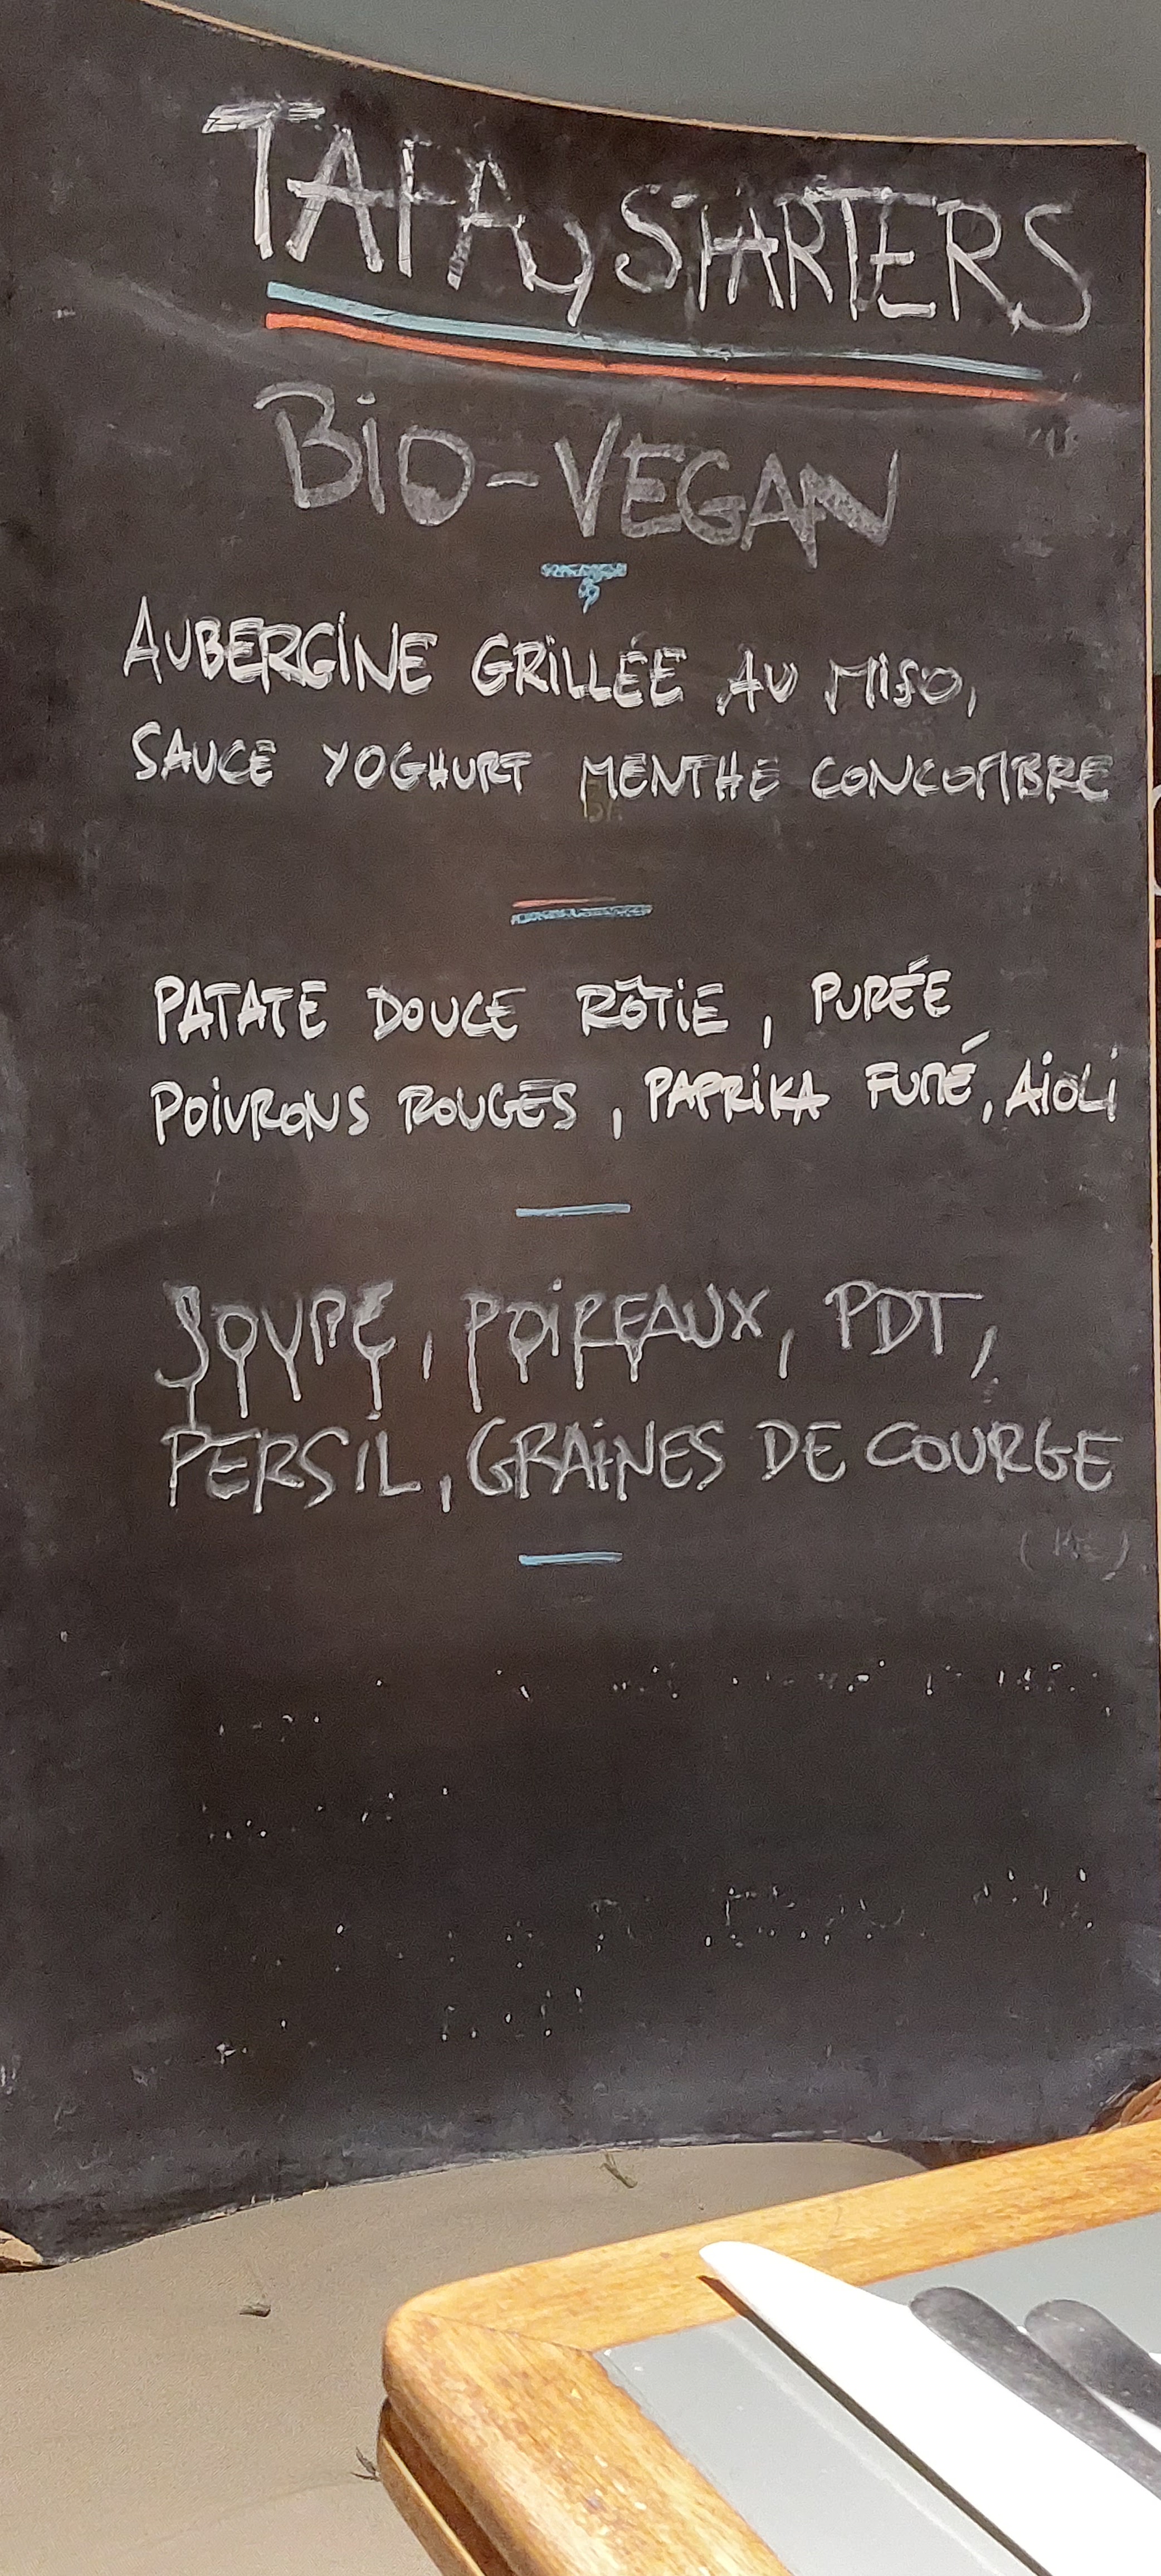 TAPAS, STARTERS
BIO-VEGAN
AUBERGINE GRILLÉE AU MISO,
SAUCE YOGHURT MENTHE CONCOMBRE
PATATE DOUCE RÔTIE, PURÉE
POIVRONS ROUGES, PAPRIKA FUMÉ, AIOLI
SOUPE, POIREAUX, PDT,
PERSIL, GRAINES DE COURGE